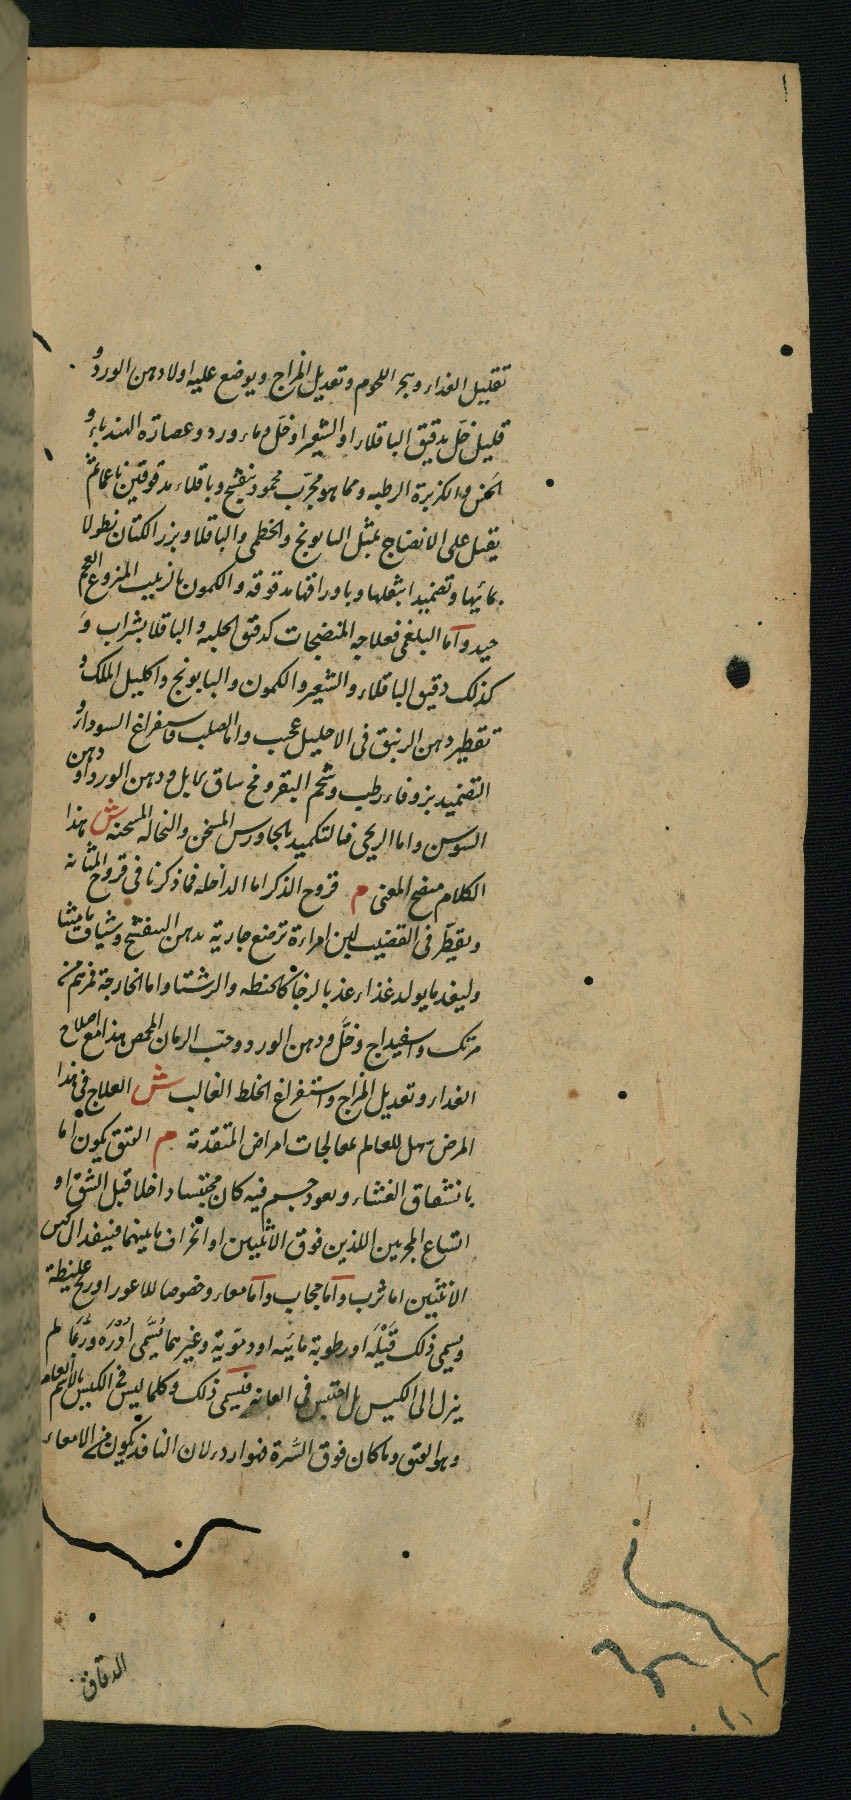 تقليل الغذاء وهجر اللحوم وتعديل المزاج ويوضع عليه اولا دهن الورد و
قليل خل بدقيق الباقلاء او الشعير او خل وماء ورد وعصارة الهندباء و
الخس والكزبرة الرطبه ومما هو مجرب محمود بنفسج وباقلاء مدقوقين ناعما ثم
يقبل على الانضاج بمثل البابونج والخطمى والباقلا وبزر الكتان نطولا
بمائها وتضميدا بثفلها وباوراقها مدقوقه والكمون بالزبيب المنزوع العجم
جيد وآما البلغمى فعلاجه المنضجات كدقيق الحلبه والباقلا بشراب و
كذلك دقيق الباقلاء والشعير والكمون والبابونج واكليل الملك و
تقطير دهن الزنبق فى الاحليل عجب واما الصلب فاستفراغ السوداء و
التضميد بزوفاء رطب وشحم البقر ومخ ساق الايل ودهن الورد او دهن
السوسن واما الريحى فالتكميد بالجاورس المسخن والنخاله المسخنه ش هذا
الكلام متضح المعنى م قروح الذكر اما الداخله فما ذكرنا فى قروح المثانه
ويقطر فى القضيب لبن امراءة ترضع جارية بدهن البنفسج وشياف ماميثا
وليغذ مايولد غذاء عذبا لزجا كالحنطه والرشتا واما الخارجة فمرهم من
مرتك واسفيداج وخل ودهن الورد وحب الرمان المحمص هذا مع اصلاح
الغذاء وتعديل المزاج واستفراغ الخلط الغالب ش العلاج فى هذا
المرض سهل للعالم بمعالجات امراض المتقدمة م الفتق يكون اما
بانشقاق الغشاء ونفوذ جسم فيه كان محتبسا داخلا قبل الشق او
اتساع المجريين اللذين فوق الانثيين او انخراق مابينهما فينفذ الى كيس
الانثيين اما ثرب وآما حجاب وآما معاء وخصوصا للاعور او ريح غليظة
ويسمى ذلك قيلة او رطوبة مائيه او دمويه وغيرهما يسمى ادره وربما لم
ينزل الى الكيس بل احتبس فى العانه فيسمى ذلك وكلما ليس فى الكيس بالاسم العام
وهو الفتق وما كان فوق السرة فهو اردء لان النافذ يكون من الامعاء
الدقاق